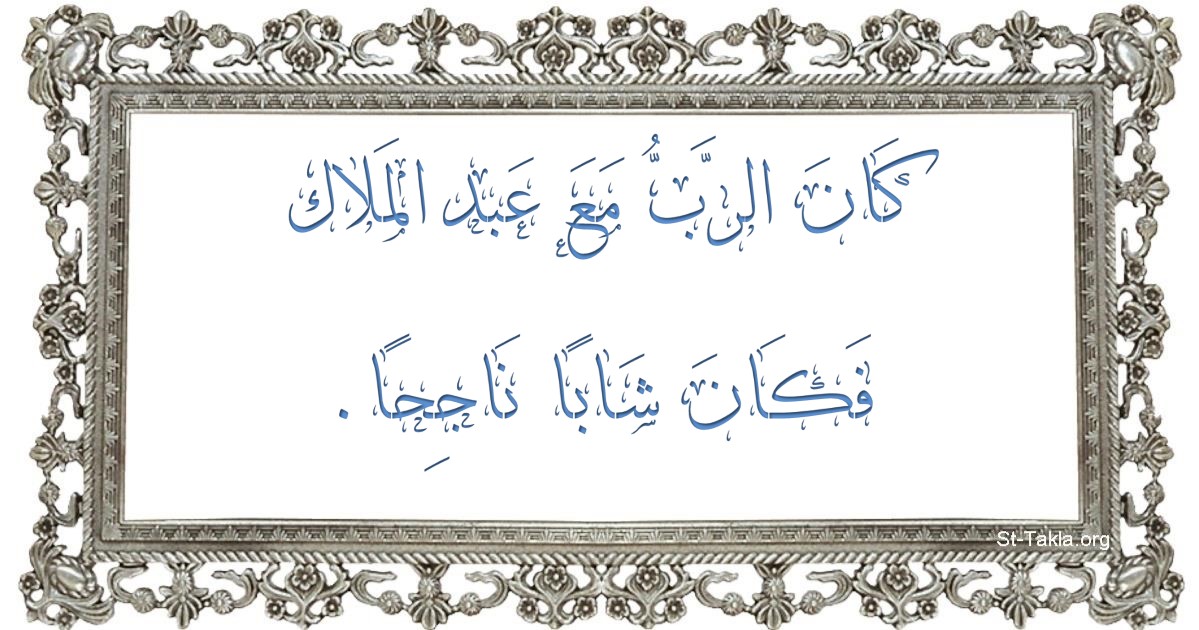 كَانَ الرَّبُّ مَعَ عَبْد الْمَلَاك
فَكَانَ شَابًا نَاجِحًا .
St-Takla.org